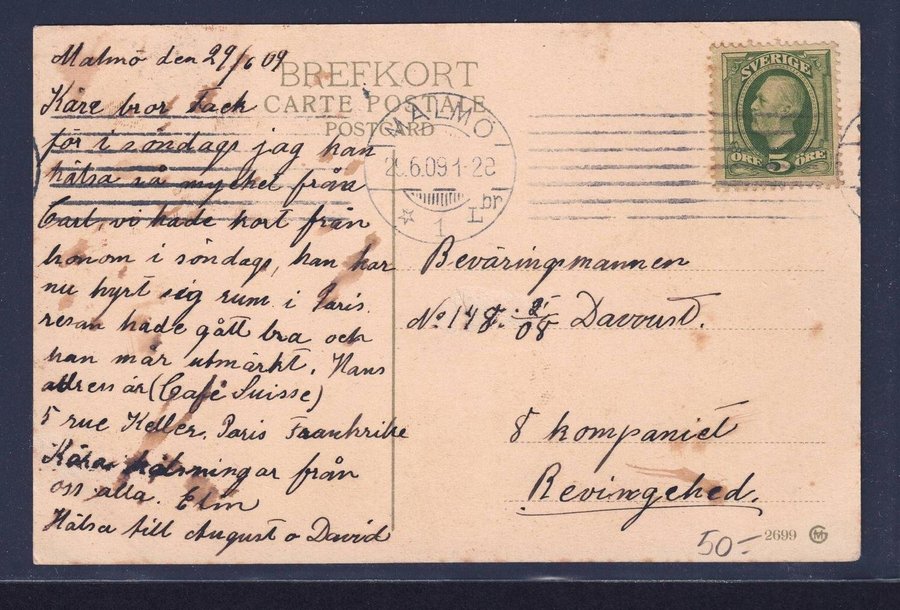 Malmö den 29/6 09
BREFKORT
CARTE POSTALE
POSTCARD
MALMÖ
2 .6.09 1-2
1 Lbr
SVERIGE
ÖRE 5 ÖRE
Käre bror Tack
för i söndags jag kan
hälsa så mycket från
Carl, vi hade kort från
honom i söndags, han har
nu hyrt sig rum i Paris.
resan hade gått bra och
han mår utmärkt. Hans
adress är (Café Suisse)
5 rue Keller. Paris Frankrike
Kära hälsningar från
oss alla. Elin
Hälsa till August o David
Beväringsmannen
No 148. /08 Davoust.
8 kompaniet
Revingehed.
50-
2699